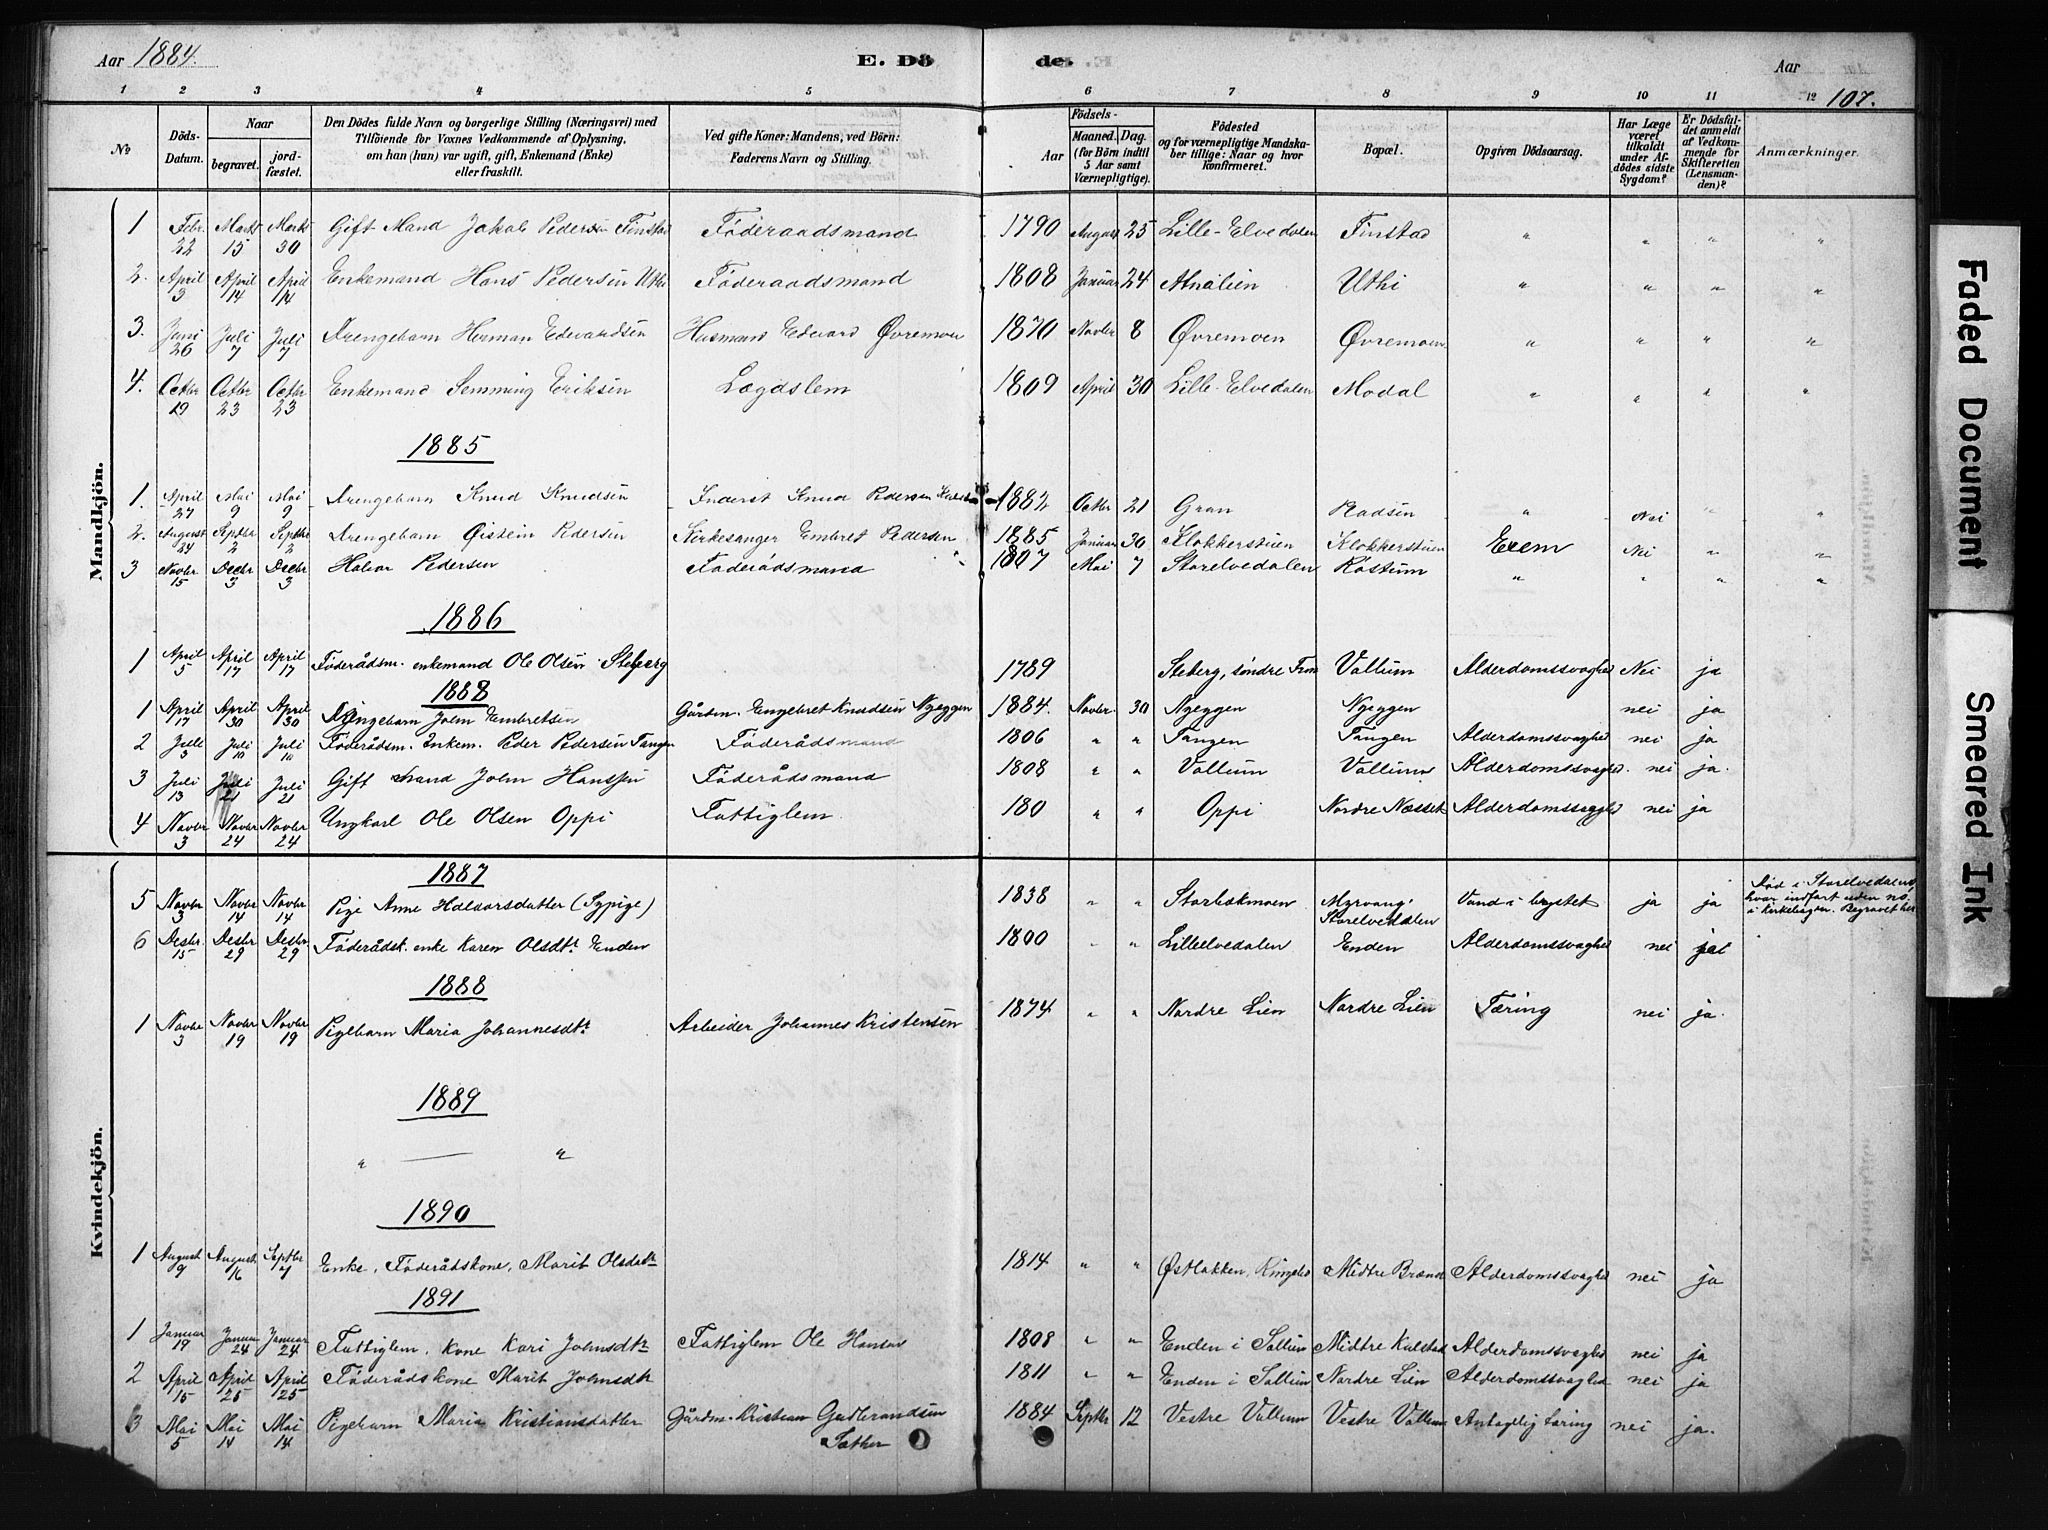 Aar 1884. E. Dö de. Aar
1 2 3 4 5 6 7 8 9 10 11 12 107.
№ Döds-Datum. Naar begravet. jord-fæstet. Den Dödes fulde Navn og borgerlige Stilling (Næringsvei) med Tilföiende for Voxnes Vedkommende af Oplysning, om han (hun) var ugift, gift, Enkemand (Enke) eller fraskilt. Ved gifte Koner: Mandens, ved Börn: Faderens Navn og Stilling. Födsels- Aar Maaned. Dag. (for Börn indtil 5 Aar samt Værnepligtige). Födested og for værnepligtige Mandska-ber tillige: Naar og hvor konfirmeret. Bopæl. Opgiven Dödsaarsag. Har Læge været tilkaldt under Af-dödes sidste Sygdom? Er Dödsful-det anmeldt af Vedkom-mende for Skifteretten (Lensman-den)? Anmærkninger.
Mandkjön.
1 Febr. 22 Marts 15 Marts 30 Gift Mand Jakob Pedersen Finstad Føderaadsmand 1790 August 25 Lille-Elvedalen Finstad " " " "
2. April 3 April 14 April 14 Enkemand Hans Pedersen Uthi Føderaadsmand 1808 Januar 24 Atnalien Uthi " " " "
3. Juni 26 Juli 7 Juli 7 Drengebarn Herman Edvardsen Husmand Edvard Øvremoen 1870 Novbr 8 Øvremoen Øvremoen " " " "
4. Octbr 19 Octbr 23 Octbr 23 Enkemand Semming Eriksen Lægdslem 1809 April 30 Lille-Elvedalen Modal " " " "
1885
1. April 27 Mai 9 Mai 9 Drengebarn Knud Knudsen Inderst Knud Pedersen 1882 Octbr 21 Gran Radsin " Nei " "
2. August 24 Septbr 2 Septbr 2 Drengebarn Øistein Pedersen Kirkesanger Embret Pedersen 1885 Januar 30 Klokkerstuen Klokkerstuen Exem Nei " "
3 Novbr 15 Decbr 3 Decbr 3 Halvor Pedersen Føderådsmand " 1807 Mai 7 Storelvedalen Rostum " " " "
1886
1 April 5 April 17 April 17 Føderådsm. enkemand Ole Olsen Steberg 1789 Steberg, søndre Fron Vollum Alderdomssvaghed Nei ja
1888
1 April 17 April 30 April 30 Drengebarn John Embretsen Gårdm. Engebret Knudsen Nyeggen 1884. Novbr. 30 Nyeggen Nyeggen nei ja
2 Juli 3 Juli 10 Juli 10 Føderådsm. Enkem. Peder Pedersen Tangen Føderådsmand 1806 " " Tangen Tangen Alderdomssvaghed nei ja
3 Juli 13 Juli 21 Juli 21 Gift Mand John Hanssen Føderådsmand 1808 " " Vollum Vollum Alderdomssvaghed. nei ja.
4 Novbr 3 Novbr 24 Novbr 24 Ungkarl Ole Olsen Oppi Fattiglem. 180 " " Oppi Nordre Næsset Alderdomssvaghed nei ja
Kvindekjön.
1887
5 Novbr 3 Novbr 14 Novbr 14 Pige Anne Halvorsdatter (Sypige) 1838 " " Storbækmoen Myrvang, Storelvedalen Vand i brystet ja ja Død i Storelvedalen, hvor indført uden no. i kirkebogen. Begravet her
6 Desbr. 15 Desbr 29 Desbr 29 Føderådsk. enke Karen Olsdtr Enden 1800 " " Lilleelvedalen Enden Alderdomssvaghed nei ja
1888
1 Novbr 3 Novbr 19 Novbr 19 Pigebarn Maria Johannesdtr Arbeider Johannes Kristensen 1874 " " Nordre Lien Nordre Lien Tæring nei ja.
1889
" — "
1890
1 August 9 August 16 Septbr 7 Enke, Føderådskone, Marit Olsdatr 1814 " " Østlakken, Ringebo Midtre Brænd Alderdomssvaghed nei ja
1891
1 Januar 19 Januar 24 Januar 24 Fattiglem. Kone Kari Johnsdtr Fattiglem Ole Hansen 1808 " " Enden i Sollien Midtre Kulstad Alderdomssvaghed nei ja
2 April 15 April 25 April 25 Føderådskone Marit Johnsdtr 1811 " " Enden i Sollien Nordre Lien Alderdomssvaghed nei ja
3 Mai 5 Mai 14 Mai 14 Pigebarn Maria Kristiansdatter Gårdm. Kristian Gudbrandsen Sæther 1884 Septbr 12 Vestre Vollum Vestre Vollum Antagelig tæring nei ja.
Faded Document
Smeared Ink